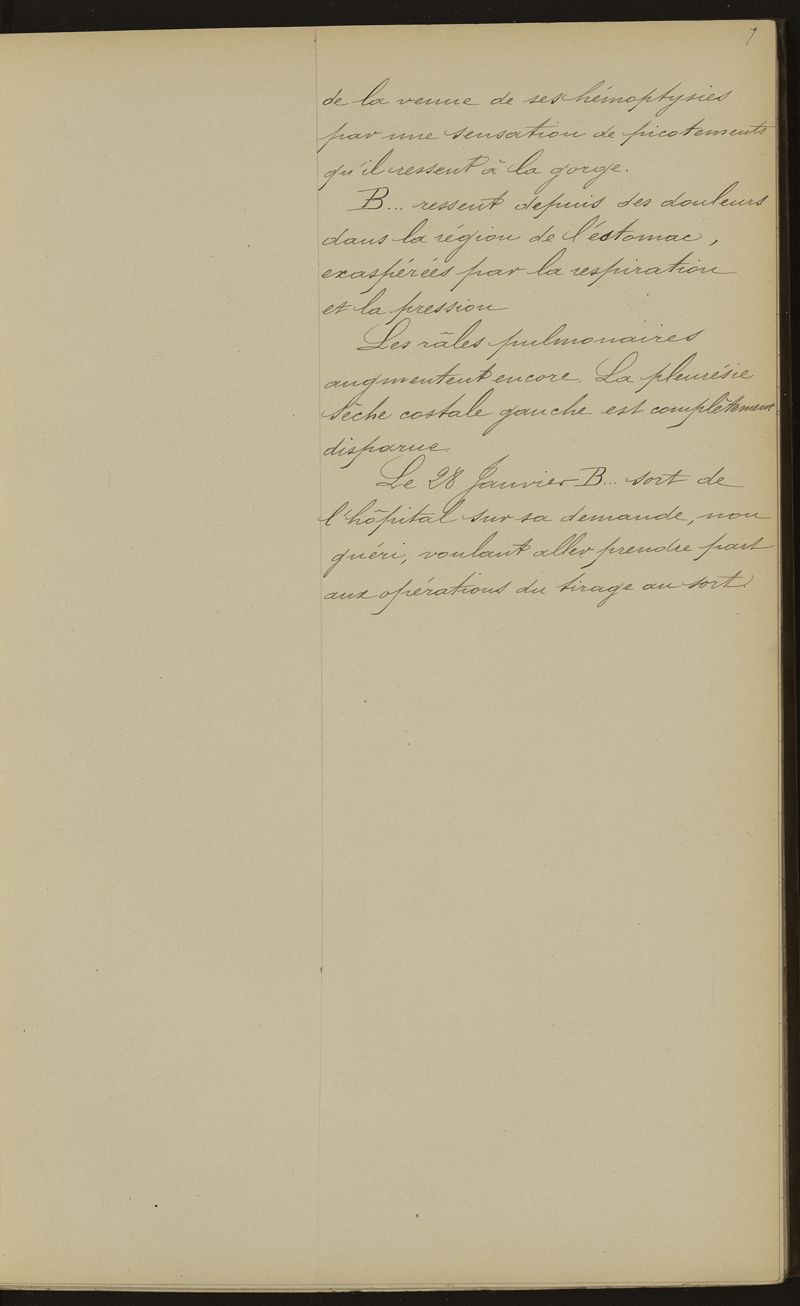 7
de la venue de ses hémoptysies
par une sensation de picotements
qu'il ressent à la gorge.
B... ressent depuis des douleurs
dans la région de l'estomac,
exaspérées par la respiration
et la pression
Les râles pulmonaires
augmentent encore. La pleurésie
sèche costale gauche est complètement
disparue.
Le 28 Janvier B... sort de
l'hôpital sur sa demande, non
guéri, voulant aller prendre part
aux opérations du tirage au sort.